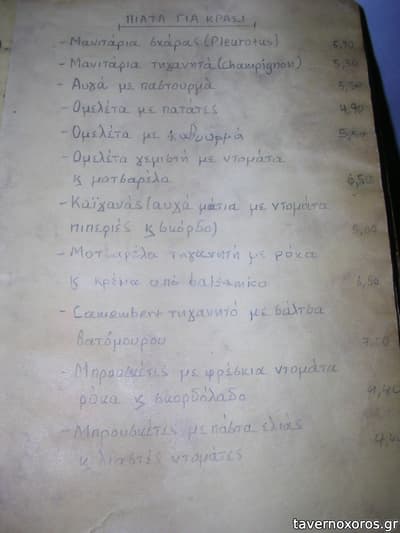 ΠΙΑΤΑ ΓΙΑ ΚΡΑΣΙ
- Μανιτάρια σχάρας (Pleurotus) 5,90
- Μανιτάρια τηγανητά (champignon) 5,30
- Αυγά με παστουρμά 5,50
- Ομελέτα με πατάτες 4,90
- Ομελέτα με καβουρμά
- Ομελέτα γεμιστή με ντομάτα
κ μοτσαρέλα 6,50
- Καϊγανάς (αυχά μάτια με ντομάτα
πιπεριές κ σκόρδο) 5,00
- Μοτσαρέλα τηγανητή με ρόκα
κ κρέμα από balsamico 6,50
- Camembert τηγανητό με σάλτσα
βατόμουρου
- Μπρουσκέτες με φρέσκια ντομάτα
ρόκα κ σκορδόλαδο
- Μπρουσκέτες με πάστα ελιάς
κ λιαστές ντομάτες
tavernoxoros.gr